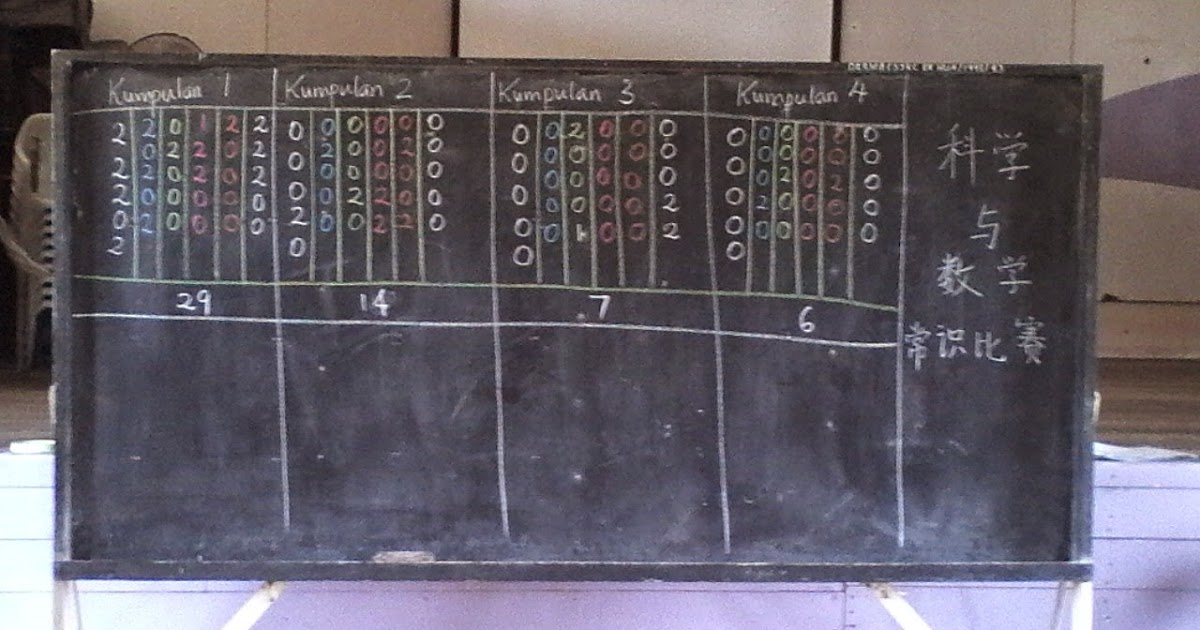 Kumpulan 1 Kumpulan 2 Kumpulan 3 Kumpulan 4
2 2 0 1 2 2 0 0 0 0 0 0 0 0 2 0 0 0 0 0 0 0 0
2 0 2 2 0 2 0 2 0 0 2 0 0 0 0 0 0 0 0 0 0 0 0 0
2 2 0 2 0 2 0 0 0 0 0 0 0 0 0 0 0 0 0 0 2 0 2 0
2 0 0 0 0 0 0 0 2 2 0 0 0 0 0 0 0 2 0 2 0 0 0 0
0 2 0 0 0 0 2 0 0 2 2 0 0 0 1 0 0 2 0 0 0 0 0 0
2 0 0 0
29 14 7 6
科学
与
数学
常识比赛